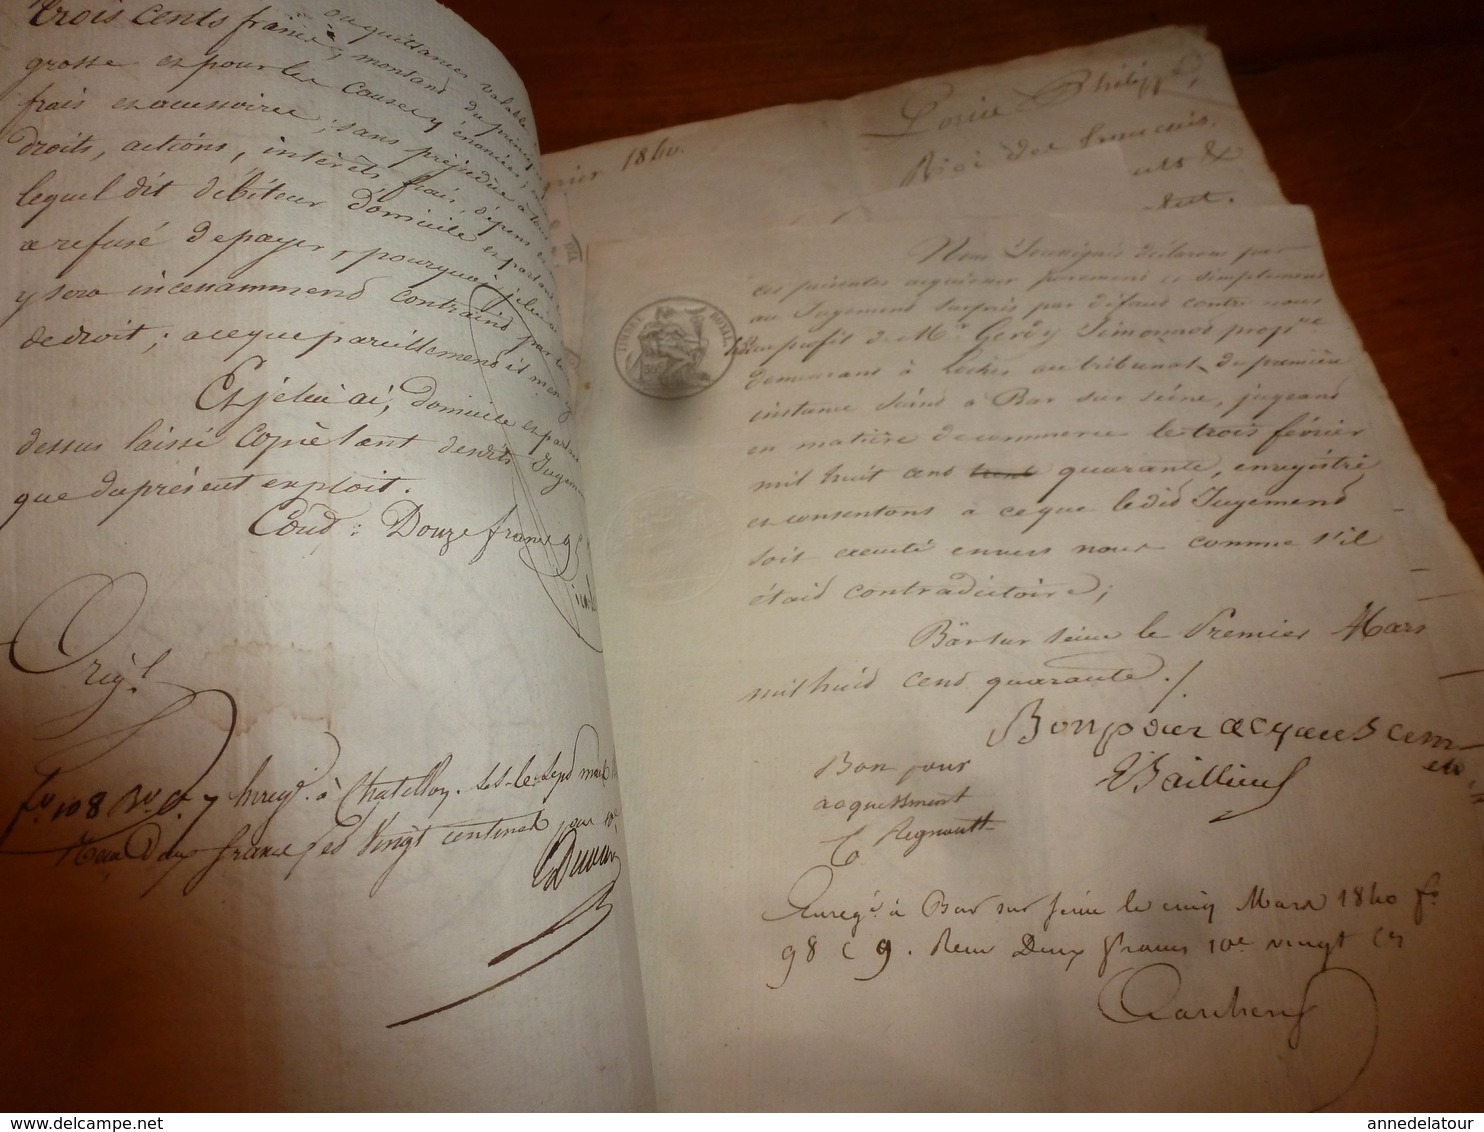 trois cents francs, ou quittances valable
grosse et pour les causes y énoncées,
frais et accessoires; sans préjudice à tous
droits, actions, intérêts frais, dépens
lequel dit débiteur domicile et parlant
a refusé de payer, pourquoi je lui ai
y sera incessamment contraint par
de droit; a ce que pareillement il n'en
Et je lui ai, domicile et parlant
dessus laissé copie tant desdits Jugement
que du présent exploit.
Cout: Douze francs
Orig.l
f.o 108 R.o C. 7 Enreg.é à Chatillon s. S. le sept mars
Reçu Deux francs et Vingt centimes pour 10e
février 1840.
Louis Philippe,
Roi des français,
Nous Soussignés déclarons par
ces présentes acquiescer purement et simplement
au Jugement surpris par défaut contre nous
au profit de M.r Gerdy Simonnot prop.re
demeurant à Loches au tribunal de première
instance séant à Bar sur seine, jugeant
en matière de commerce le trois février
mil huit cent trente quarante, enregistré
et consentons à ce que ledit Jugement
soit executé envers nous comme s'il
était contradictoire;
Bar sur seine le Premier Mars
mil huit cent quarante./.
Bon pour acquiescement
Bon pour
acquessment
Regnault
Enreg.é à Bar sur seine le cinq Mars 1840 f.o
98 C 9. Reçu Deux francs 10e vingt Ces
TIMBRE ROYAL
35c
www.delcampe.net
annedelatour